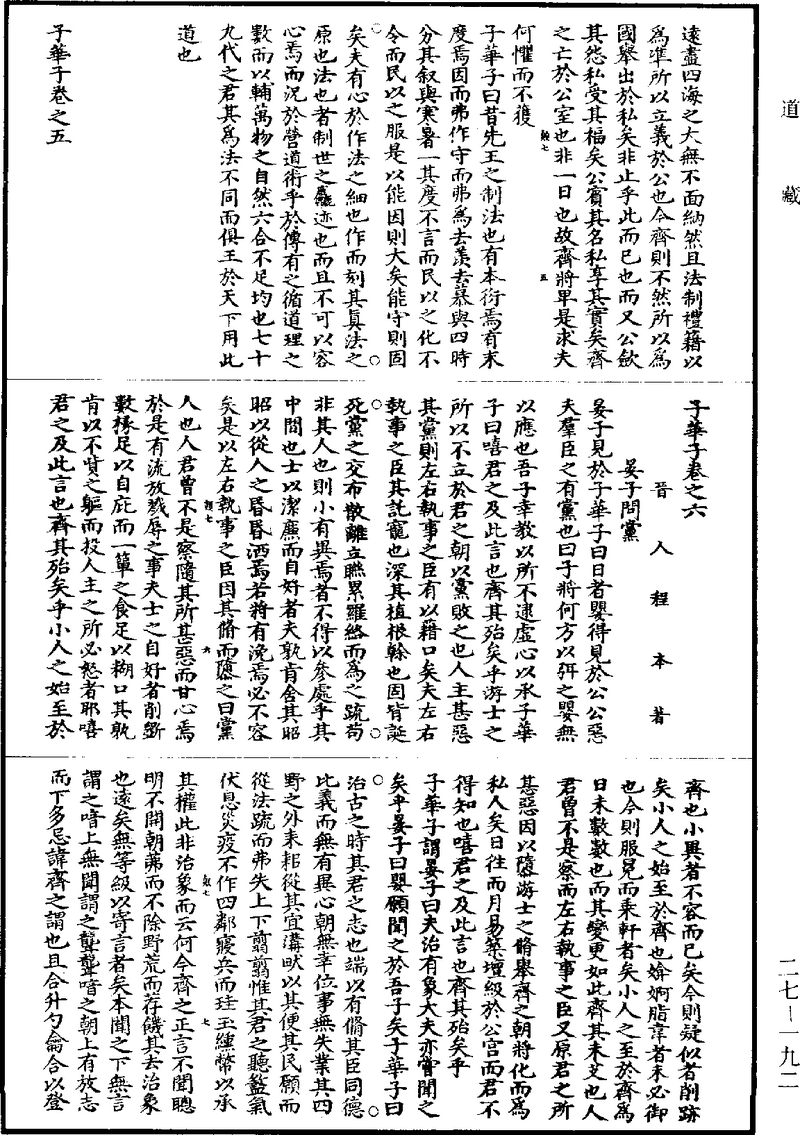 道藏
遠盡四海之大無不面納然且法制禮籍以
為準所以立義於公也今齊則不然所以為
國舉出於私矣非止乎此而已也而又公斂
其怨私受其福矣公賓其名私享其實矣齊
之亡於公室也非一日也故齊將早是求夫
何懼而不獲
子華子曰昔先王之制法也有本衍焉有末
度焉因而弗作守而弗為去羨去慕與四時
分其叙與寒暑一其度不言而民以之化不
令而民以之服是以能因則大矣能守則固
矣夫有心於作法之細也作而刻其真法之
原也法也者制世之麤迹也而且不可以容
心焉而況於營道術乎於傳有之循道理之
數而以輔萬物之自然六合不足均也七十
九代之君其為法不同而俱王於天下用此
道也
子華子卷之五
子華子卷之六
晉人程本著
晏子問黨
晏子見於子華子曰日者嬰得見於公公惡
夫羣臣之有黨也曰子將何方以弭之嬰無
以應也吾子幸教以所不逮虛心以承子華
子曰嘻君之及此言也齊其殆矣乎游士之
所以不立於君之朝以黨敗之也人主甚惡
其黨則左右執事之臣有以藉口矣夫左右
執事之臣其託寵也深其植根榦也固皆誕
死黨之交布散離立聮累羅絡而為之疏苟
非其人也則小有異焉者不得以參處乎其
中間也士以潔廉而自好者夫孰肯舍其昭
昭以從人之昏昏洒焉若將有浼焉必不容
矣是以左右執事之臣因其脩而隳之曰黨
人也人君曾不是察隨其所甚惡而甘心焉
於是有流放戮辱之事夫士之自好者削斵
數椽足以自庇而一簞之食足以糊口其孰
肯以不貲之軀而投人主之所必怒者耶嘻
君之及此言也齊其殆矣乎小人之始至於
齊也小異者不容而已矣今則疑似者削跡
矣小人之始至於齊也媕婀脂韋者未必御
也今則服冕而乘軒者矣小人之至於齊為
日未數數也而其變更如此齊其未艾也人
君曾不是察而左右執事之臣又原君之所
甚惡因以隳游士之脩舉齊之朝將化而為
私人矣日徃而月易築壇級於公宫而君不
得知也嘻君之及此言也齊其殆矣乎
子華子謂晏子曰夫治有象大夫亦嘗聞之
矣乎晏子曰嬰願聞之於吾子矣子華子曰
治古之時其君之志也端以有脩其臣同德
比義而無有異心朝無幸位事無失業其四
野之外耒耜從其宜溝畎以其便其民願而
從法疏而弗失上下翦翦惟其君之聽盭氣
伏息災疫不作四鄰寢兵而珪玉纁幣以承
其權此非治象而云何今齊之正言不聞聰
明不開朝茀而不除野荒而荐饑其去治象
也遠矣無等級以寄言者矣本聞之下無言
謂之喑上無聞謂之聾聾喑之朝上有放志
而下多忌諱齊之謂也且合升勺龠合以登
二七—一九二